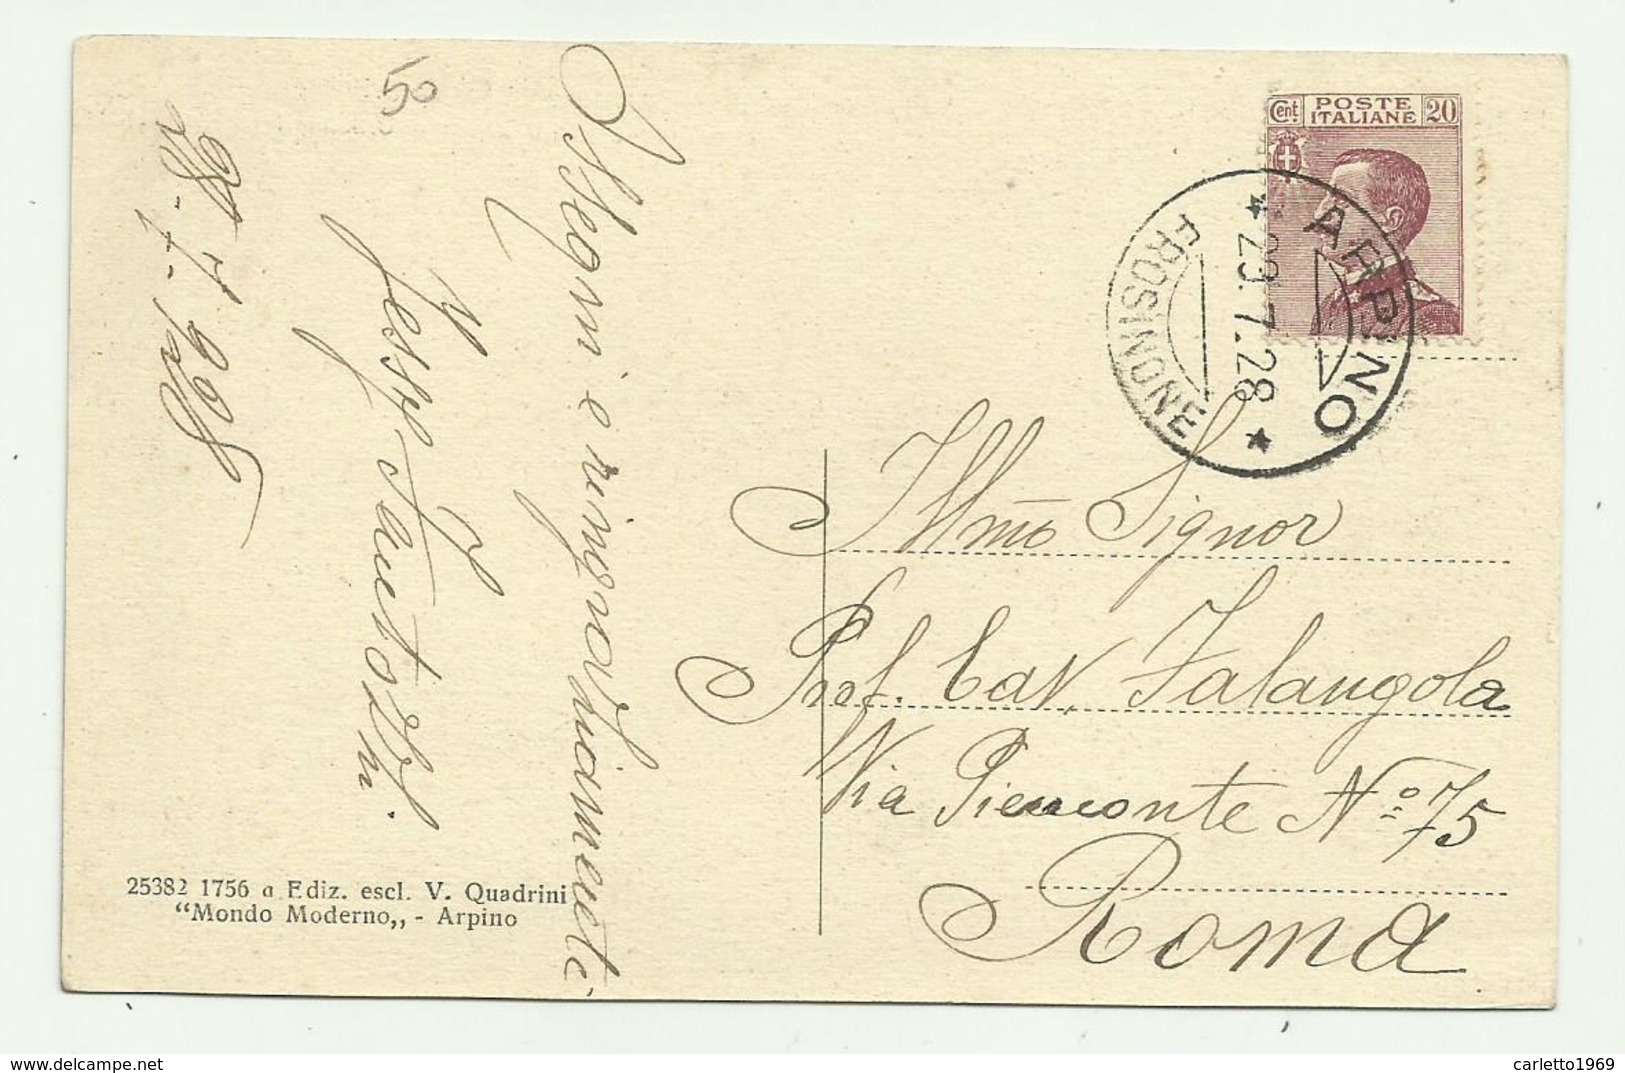 50
Ossequi e ringraziamenti
28-7-928
25382 1756 a Ediz. escl. V. Quadrini
"Mondo Moderno„ - Arpino
Cent. POSTE ITALIANE 20
ARPINO
* 29.7.28 *
FROSINONE
Illmo Signor
Prof. Cav. Falangola
Via Piemonte No 75
Roma
www.delcampe.net
carletto1969